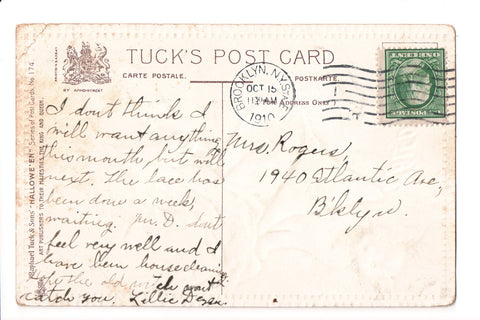 TUCK'S POST CARD
CARTE POSTALE.
POSTKARTE.
BY APPOINTMENT
(For Address Only)
BROOKLYN, N.Y.
OCT 15
11 AM
1910
Raphael Tuck & Sons' "HALLOWE'EN" Series of Post Cards, No. 174.
ART PUBLISHERS TO THEIR MAJESTIES THE KING AND QUEEN.
I dont think I
will want anything
this month but will
next. The lace has
been done a week,
waiting. Mr. D. dont
feel very well and I
have been housecleaning
the old witch wont
catch you. Lillie
Mrs. Rogers,
1940 Atlantic Ave,
B'klyn.